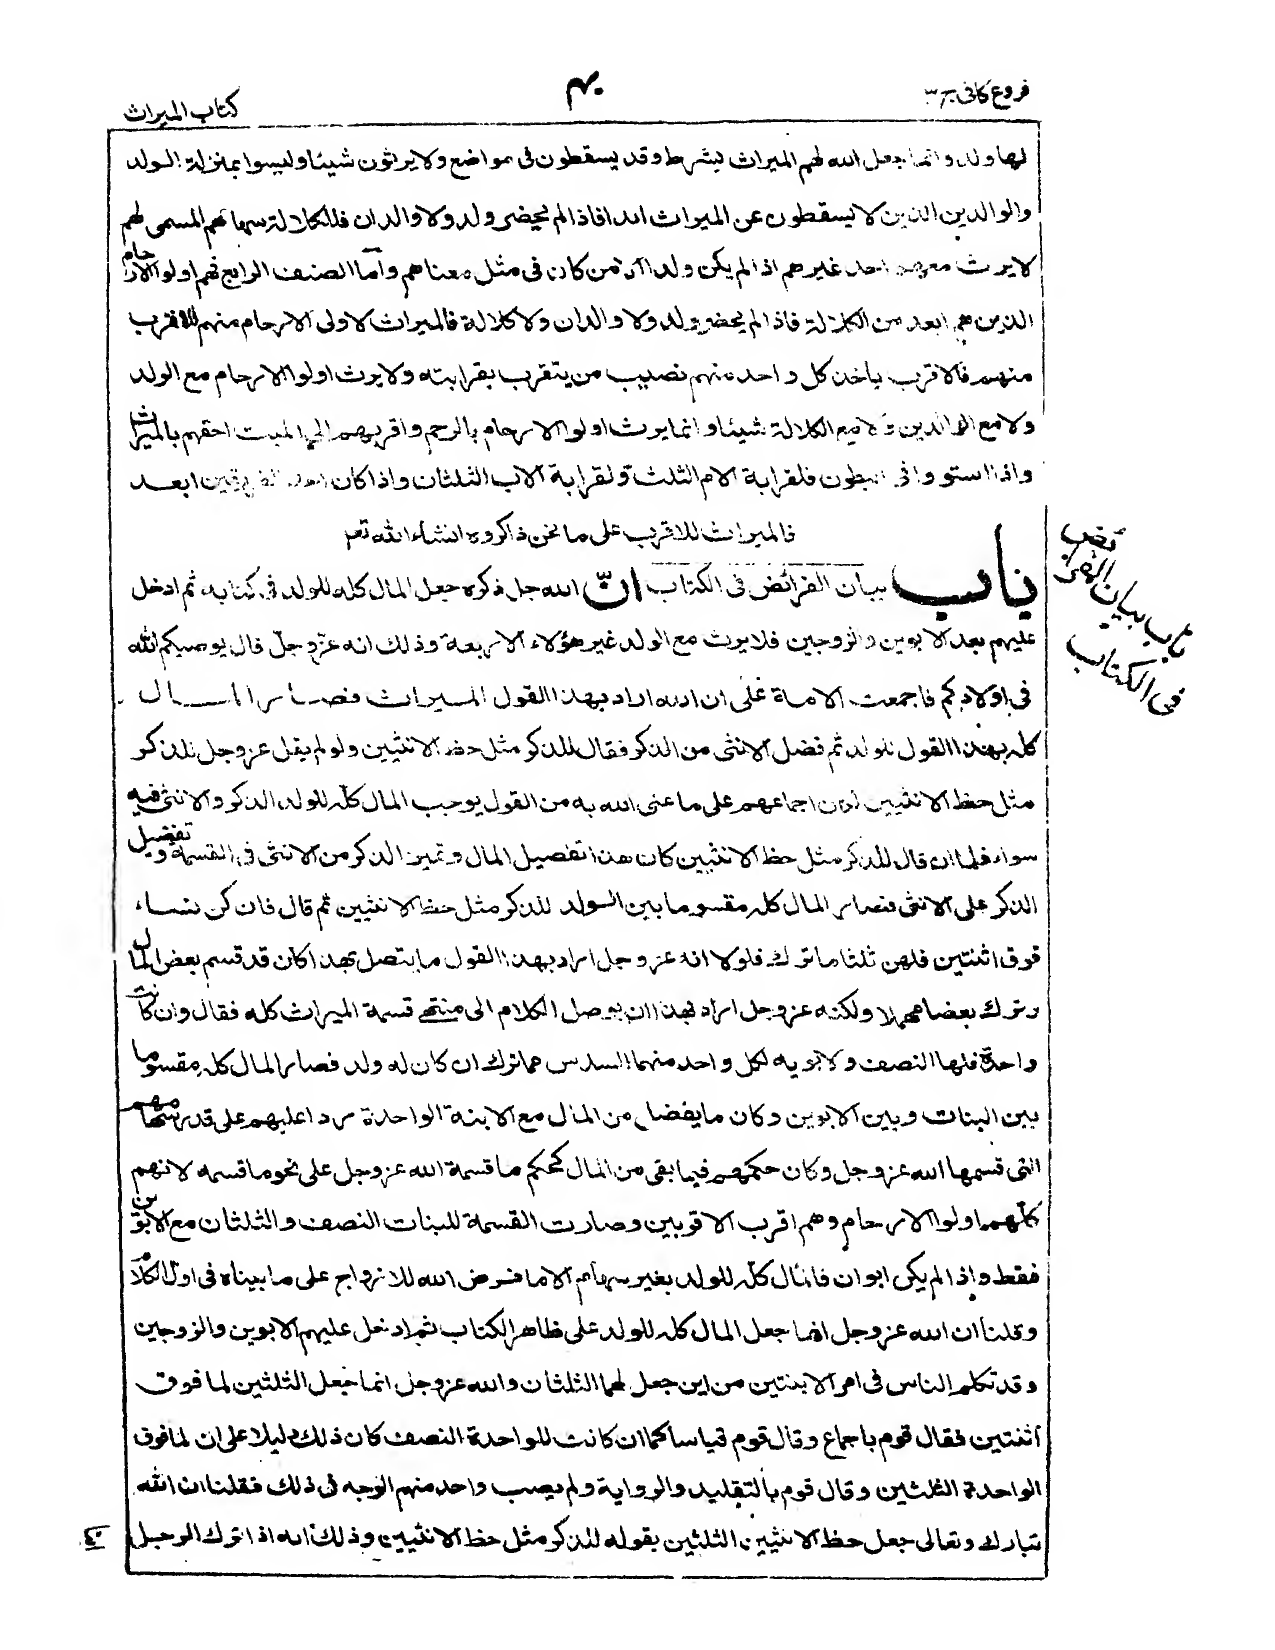 فروع کافی ج ٣
۴۰
كتاب الميراث
لها ولد وانما جعل الله لهم الميراث بشرط وقد يسقطون فى مواضع ولا يرثون شيئا وليسوا بمنزلة الولد
والوالدين الذين لا يسقطون عن الميراث ابدا فاذا لم يحضر ولد ولا والدان فللكلالة سهامهم المسمى لهم
لا يرث معهم احد غيرهم اذا لم يكن ولد الا من كان فى مثل معناهم وأما الصنف الرابع فهم اولوا الارحام
الذين هم ابعد من الكلالة فاذا لم يحضر ولد ولا والدان ولا كلالة فالميراث لاولى الارحام منهم للاقرب
منهم فالاقرب ياخذ كل واحد منهم نصيب من يتقرب بقرابته ولا يرث اولوا الارحام مع الولد
ولا مع الوالدين ولا مع الكلالة شيئا وانما يرث اولوا الارحام بالرحم واقربهم الى الميت احقهم بالميراث
واذا استووا فى البطون فلقرابة الام الثلث ولقرابة الاب الثلثان واذا كان احد الفريقين ابعد
فالميراث للاقرب على ما نحن ذاكروه انشاء الله تعم
باب بيان الفرائض فى الكتاب انّ الله جل ذكره جعل المال كله للولد فى كتابه ثم ادخل
باب بيان الفرائض
فى الكتاب
عليهم بعد الابوين والزوجين فلا يرث مع الولد غير هؤلاء الاربعة وذلك انه عز وجل قال يوصيكم الله
فى اولادكم فاجمعت الامة على ان الله اراد بهذا القول الميراث فصار المال
كله بهذا القول للولد ثم فضل الانثى من الذكر فقال للذكر مثل حظ الانثيين ولو لم يقل عز وجل للذكر
مثل حظ الانثيين لكان اجماعهم على ما عنى الله به من القول يوجب المال كله للولد الذكر والانثى فيه
سواء فلما ان قال للذكر مثل حظ الانثيين كان هذا تفصيل المال وتميز الذكر من الانثى فى القسمة وتفضيل
الذكر على الانثى فصار المال كله مقسوما بين الولد للذكر مثل حظ الانثيين ثم قال فان كن نساء
فوق اثنتين فلهن ثلثا ما ترك فلولا انه عز وجل اراد بهذا القول ما يتصل بهذا كان قد قسم بعض المال
وترك بعضا مهملا ولكنه عز وجل اراد بهذا ان يوصل الكلام الى منتهى قسمة الميراث كله فقال وان كانت
واحدة فلها النصف ولابويه لكل واحد منهما السدس مما ترك ان كان له ولد فصار المال كله مقسوما
بين البنات وبين الابوين وكان ما يفضل من المال مع الابنة الواحدة ردا عليهم على قدر سهامهم
التى قسمها الله عز وجل وكان حكمهم فيما بقى من المال كحكم ما قسمة الله عز وجل على نحو ما قسمه لانهم
كلهم اولوا الارحام وهم اقرب الاقربين وصارت القسمة للبنات النصف والثلثان مع الابوين
فقط واذا لم يكن ابوان فالمال كله للولد بغير سهام الا ما فرض الله للازواج على ما بيناه فى اول الكلام
وقلنا ان الله عز وجل انما جعل المال كله للولد على ظاهر الكتاب ثم ادخل عليهم الابوين والزوجين
وقد تكلم الناس فى امر الابنتين من اين جعل لهما الثلثان والله عز وجل انما جعل الثلثين لما فوق
اثنتين فقال قوم باجماع وقال قوم قياسا كما ان كانت للواحدة النصف كان ذلك دليلا على ان لما فوق
الواحدة الثلثين وقال قوم بالتقليد والرواية ولم يصب واحد منهم الوجه فى ذلك فقلنا ان الله
تبارك وتعالى جعل حظ الانثيين الثلثين بقوله للذكر مثل حظ الانثيين وذلك انه اذا ترك الرجل